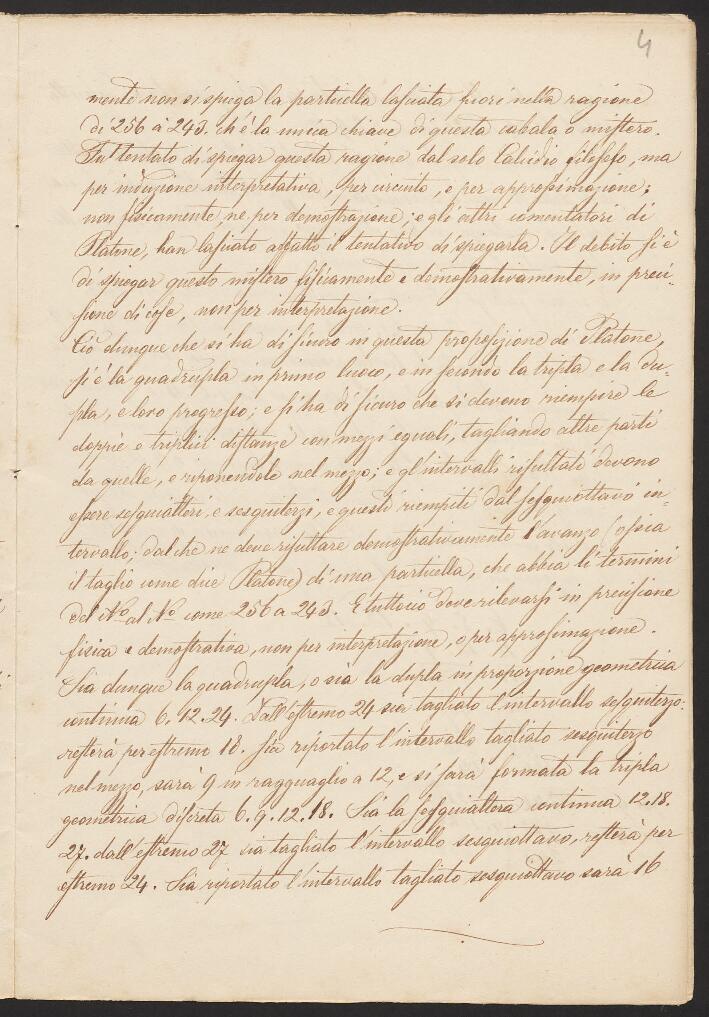 4
mente non si spiega la particella lasciata fuori nella ragione
di 256 à 243. ch'è la unica chiave di questa cabala o mistero.
Fu tentato di spiegar questa ragione dal solo Calcidio filosofo, ma
per induzione interpretativa, per circuito, e per approssimazione;
non fisicamente, ne per demostrazione; e gli altri comentatori di
Platone, han lasciato affatto il tentativo di spiegarla. Il debito si è
di spiegar questo mistero fisicamente e demostrativamente, in preci-
sione di cose, non per interpretazione.
Ciò dunque che si ha di sicuro in questa proposizione di Platone,
si è la quadrupla in primo luoco, e in secondo la tripla e la du-
pla, e loro progresso; e si ha di sicuro che si devono riempire le
doppie e triplici distanze con mezzi eguali, tagliando altre parti
da quelle, e riponendole nel mezzo; e gl'intervalli risultati devono
essere sesquialteri, e sesquiterzi, e questi riempiti dal sesquiottavo in-
tervallo; dal che ne deve risultare demostrativamente l'avanzo (ossia
il taglio come dice Platone) di una particella, che abbia li termini
del No. al No. come 256 a 243. E tuttociò deve rilevarsi in precisione
fisica e demostrativa, non per interpretazione, o per approssimazione.
Sia dunque la quadrupla, o sia la dupla in proporzione geometrica
continua 6. 12. 24. Dall'estremo 24 sia tagliato l'intervallo sesquiterzo:
resterà per estremo 18. Sia riportato l'intervallo tagliato sesquiterzo
nel mezzo, sarà 9 in ragguaglio a 12, e si sarà formata la tripla
geometrica discreta 6. 9. 12. 18. Sia la sesquialtera continua 12. 18.
27. dall'estremo 27 sia tagliato l'intervallo sesquiottavo, resterà per
estremo 24. Sia riportato l'intervallo tagliato sesquiottavo sarà 16